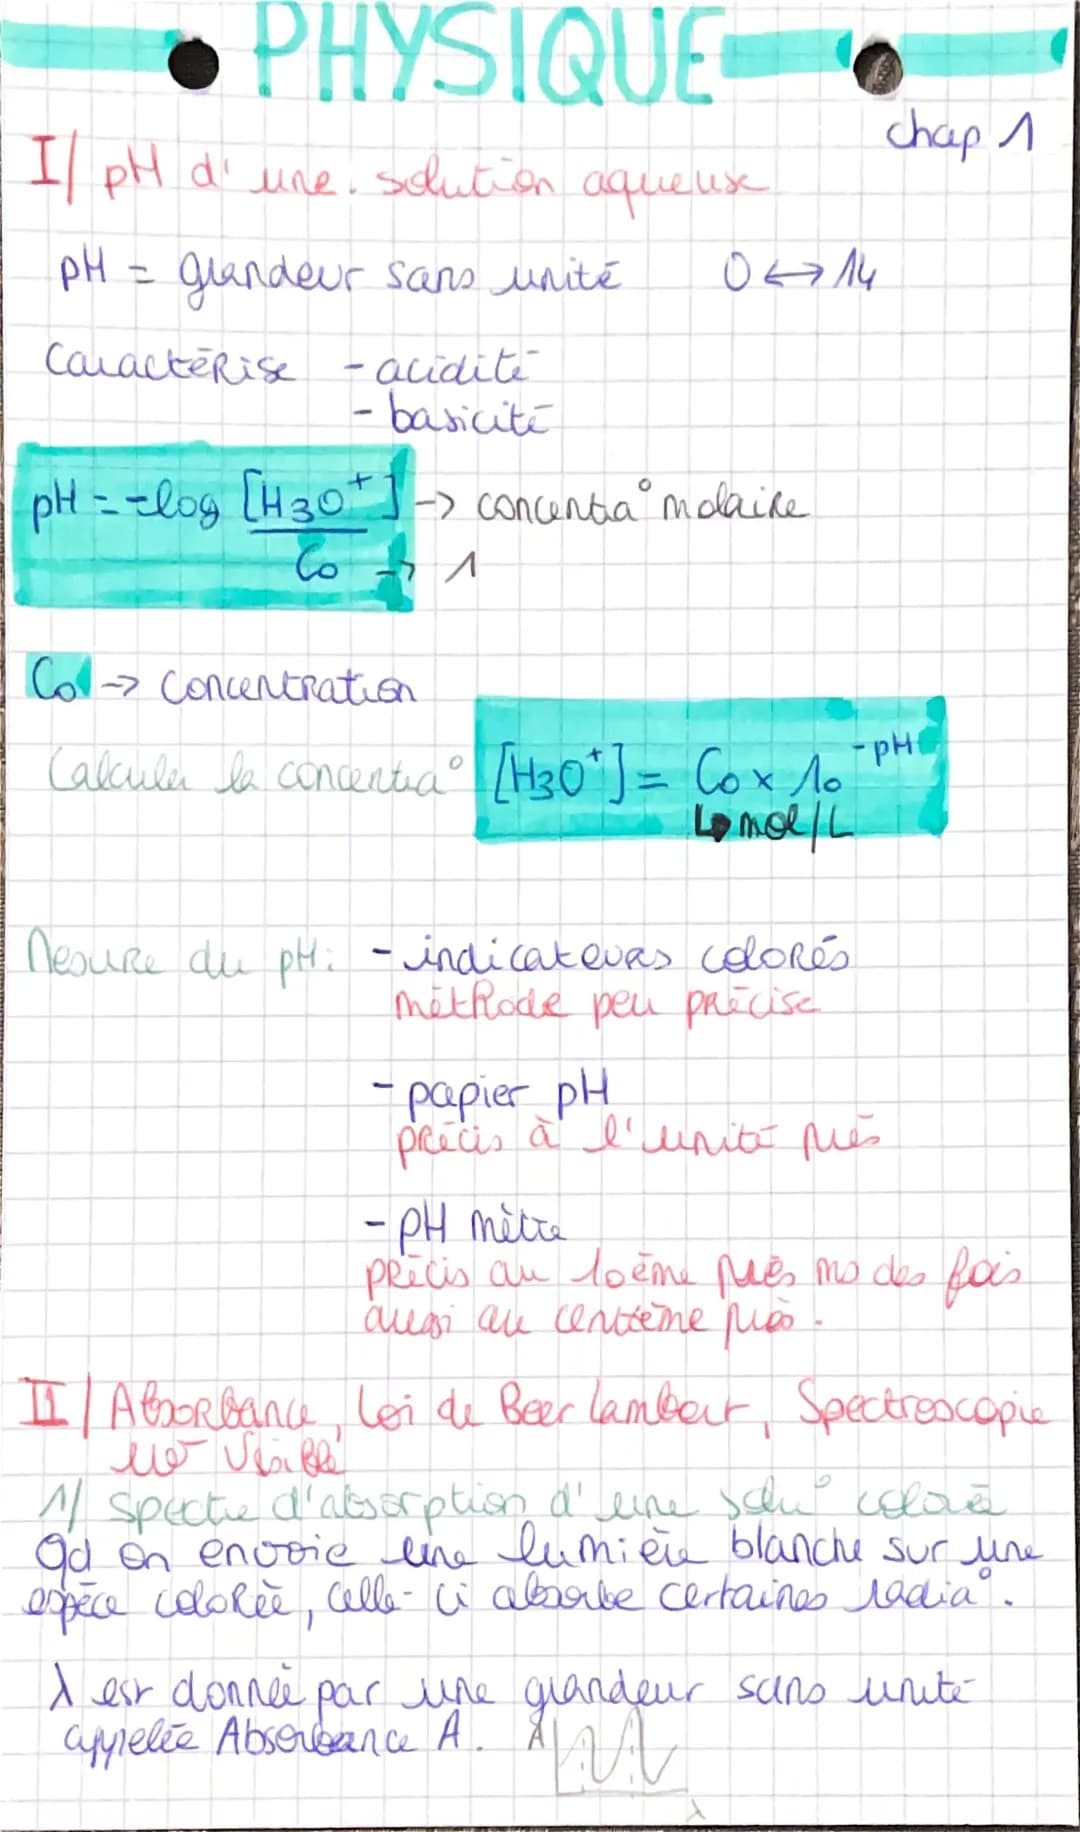 PHYSIQUE
chap 1
I/ pH d'une solution aqueuse
pH = grandeur sans unité 0 ↔ 14
Caractérise - acidité
- basicité
pH = -log [H3O+] -> concentra° molaire
C0 -> 1
C0 -> concentration
Calculer la concentra° [H3O+] = C0 x 10 -pH
↳ mol/L
Mesure du pH: - indicateurs colorés
méthode peu précise
- papier pH
précis à l'unité près
- pH mètre
précis au 10ème près mo des fois
aussi au centième près.
II/ Absorbance, Loi de Beer lambert, Spectroscopie
UV Visible
1/ Spectre d'absorption d'une solu° colorée
Qd on envoie une lumière blanche sur une
espèce colorée, celle-ci absorbe certaines radia°.
λ est donnée par une grandeur sans unité
appelée Absorbance A. A
λ